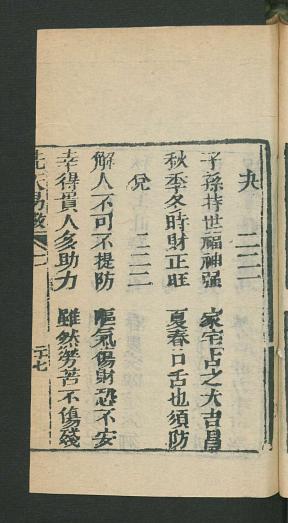 夬 二二二
子孫持世福神强 家宅占之大吉昌
秋季冬時財正旺 夏春口舌也須防
兌 二二二
解人不可不提防 嘔氣傷財恐不安
幸得貴人多助力 雖然勞苦不傷殘
先天易數 二十七